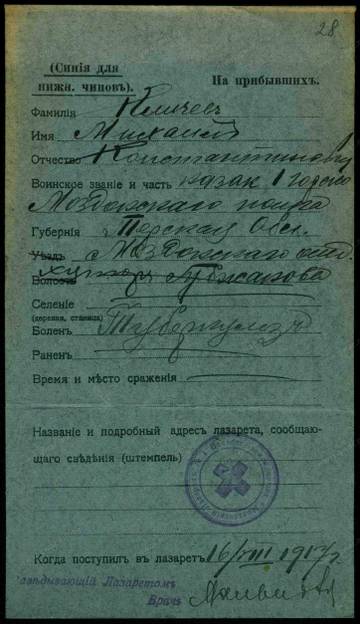 28
(Синія для
нижн. чиновъ).
На прибывшихъ.
Фамилія
Имя Михаилъ
Отчество Константиновичъ
Воинское званіе и часть казак 1
Моздокскаго полка
Губернія Терская Обл.
Уѣздъ Моздокскаго отд.
Волость хуторъ
Селеніе
(деревня, станица)
Боленъ Туберкулезъ
Раненъ
Время и мѣсто сраженія
Названіе и подробный адресъ лазарета, сообщаю-
щаго свѣдѣнія (штемпель)
Когда поступилъ въ лазаретъ 16/VIII 1917 г.
Завѣдывающій Лазаретомъ
Врачъ